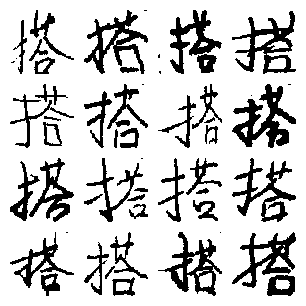 搭搭搭搭
搭搭搭搭
搭搭搭搭
搭搭搭搭